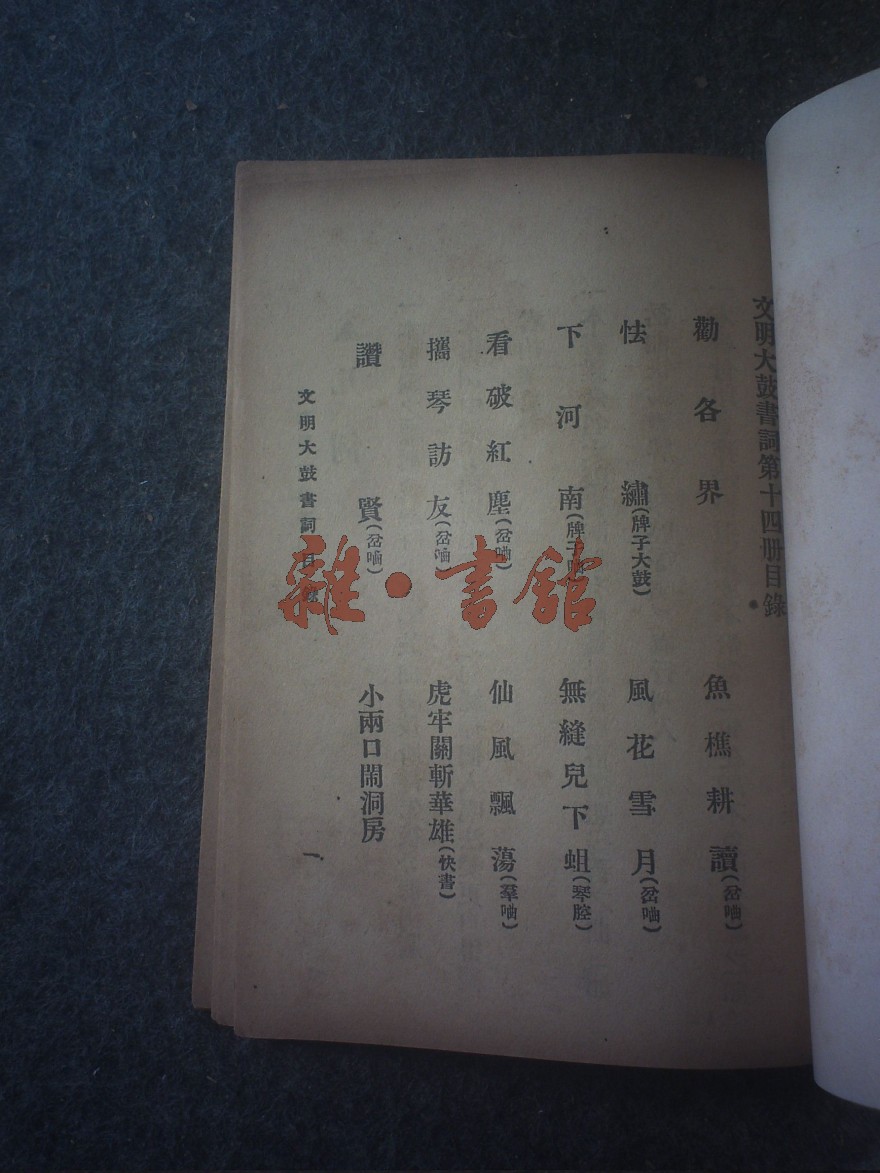 文明大鼓書詞第十四册目錄
勸各界
魚樵耕讀(岔曲)
怯繡(牌子大鼓)
風花雪月(岔曲)
下河南(牌子
無縫兒下蛆(琴腔)
看破紅塵(岔曲)
仙風飄蕩(羣曲)
攜琴訪友(岔曲)
虎牢關斬華雄(快書)
讚賢(岔曲)
小兩口鬧洞房
文明大鼓書詞目錄
一
雜·書館